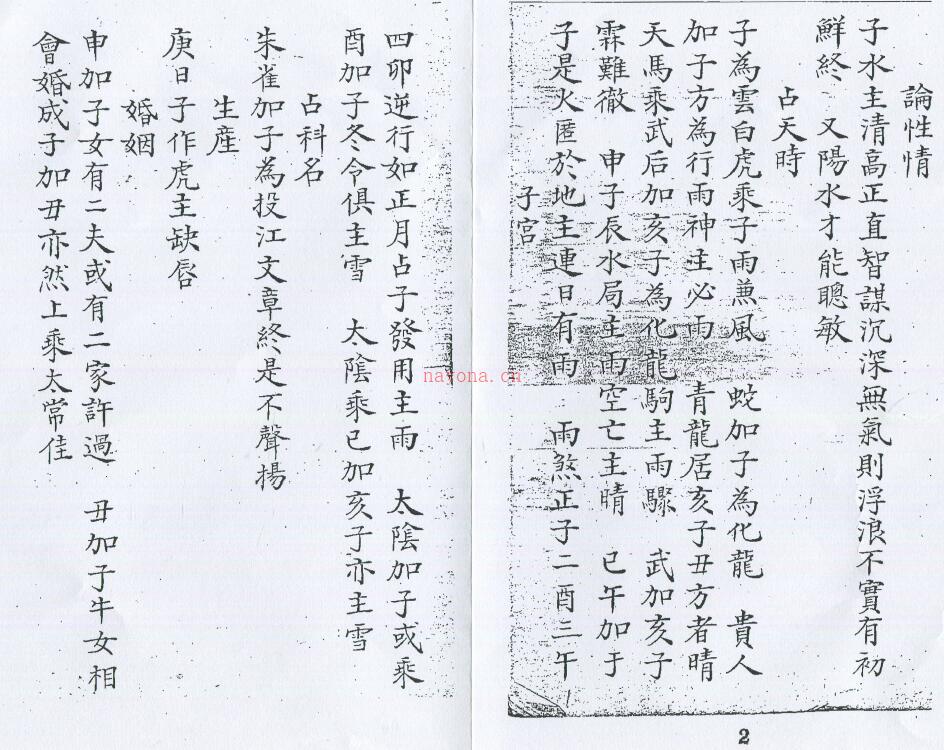 論性情
子水主清高正直智謀沉深無氣則浮浪不實有初
鮮終　又陽水才能聰敏
占天時
子為雲白虎乘子雨兼風　蛟加子為化龍　貴人
加子方為行雨神主必雨　青龍居亥子丑方者晴
天馬乘武后加亥子為化龍駒主雨驟　武加亥子
霖難徹　申子辰水局主雨空亡主晴　巳午加于
子是火匿於地主連日有雨　雨煞正子二酉三午
子宮
四卯逆行如正月占子發用主雨　太陰加子或乘
酉加子冬令俱主雪　太陰乘巳加亥子亦主雪
占科名
朱雀加子為投江文章終是不聲揚
生産
庚日子作虎主缺唇
婚姻
申加子女有二夫或有二家許過　丑加子牛女相
會婚成子加丑亦然上乘太常佳
nayona.cn
2